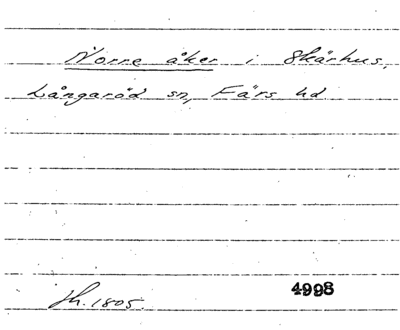 Norre åker i Skärhus,
Långaröd sn, Färs hd
Jh. 1805.
4998